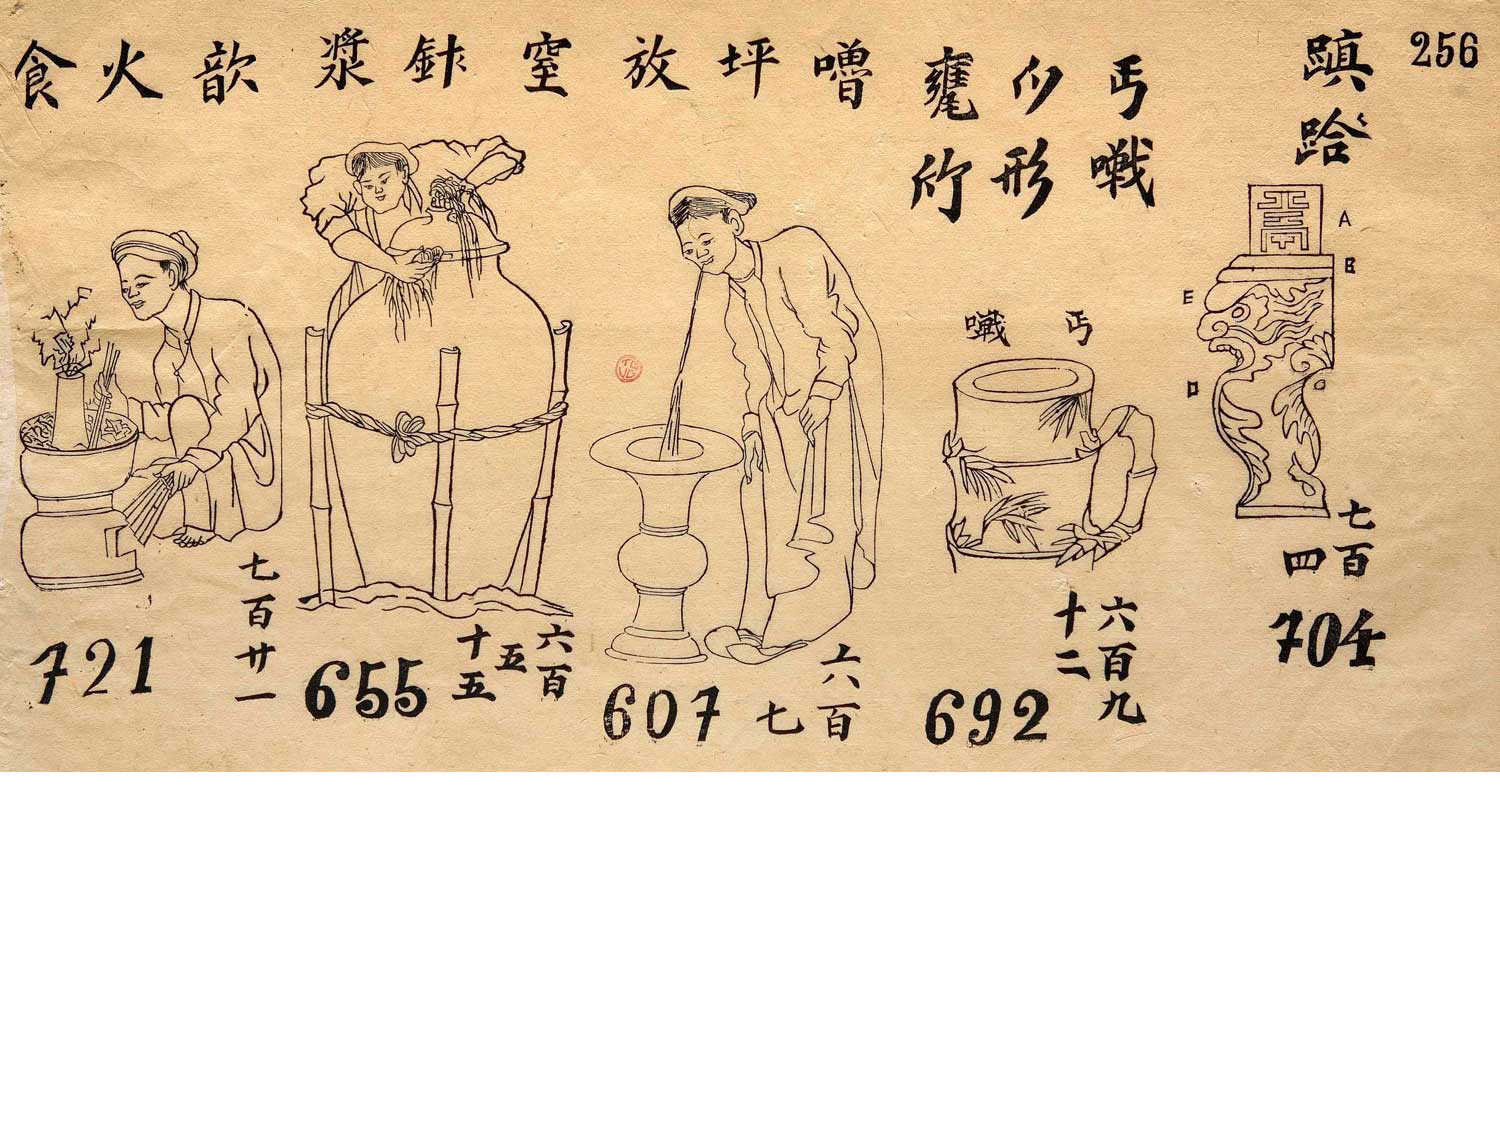 256
蹎
跲
丐
形
竹
嚕 坪 放
窒 漿
歆 火 食
丐
A
B
E
D
C
七百
四
704
六百九
十二
692
六百
七
607
六百
五
十五
655
七百廿一
721